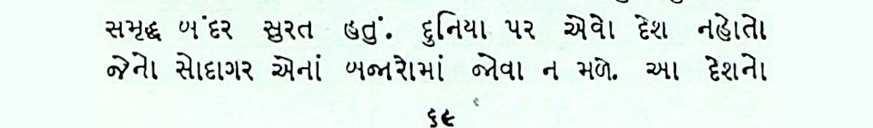 સમૃદ્ધ બંદર સુરત હતું. દુનિયા પર એવો દેશ નહોતો
જેનો સોદાગર એનાં બજારોમાં જોવા ન મળે. આ દેશનો
૬૯